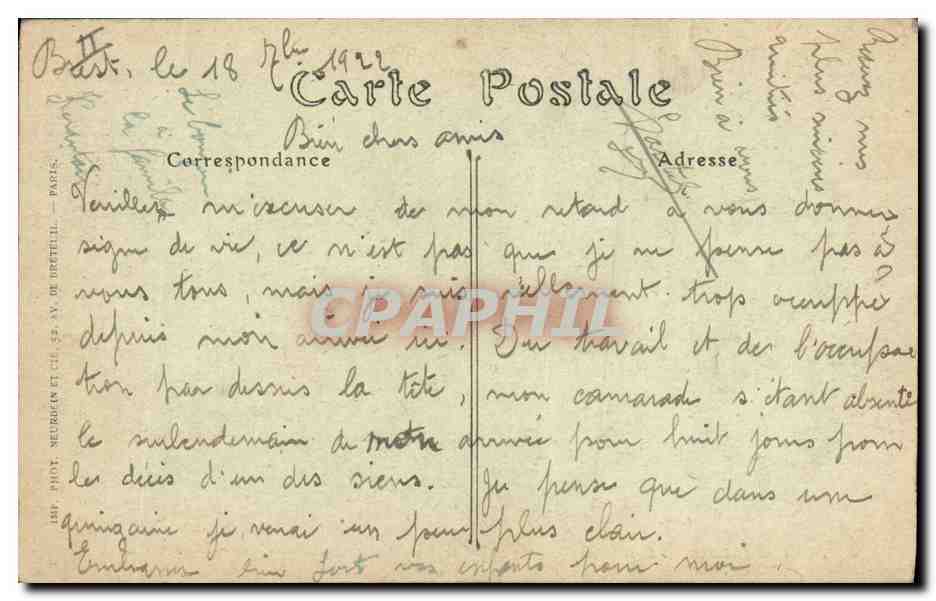 Brest, le 18 7bre 1922
Carte Postale
Bien chers amis
Correspondance
Adresse
Veuillez m'excuser de mon retard à vous donner
signe de vie, ce n'est pas que je ne pense pas à
vous tous, mais je suis réellement trop occuppé
depuis mon arrivée ici. Du travail et de l'occupa
tion par dessus la tête, mon camarade s'étant absenté
le surlendemain de mon arrivée pour huit jours pour
le décès d'un des siens. Je pense que dans une
quinzaine je verrai un peu plus clair.
Embrassez bien fort vos enfants pour moi.
Recevez mes
plus sincères
amitiés
Bien à vous
Le bonjour
à
la famille
IMP. PHOT. NEURDEIN ET CIE, 52, AV. DE BRETEUIL. — PARIS.
CPAPHIL